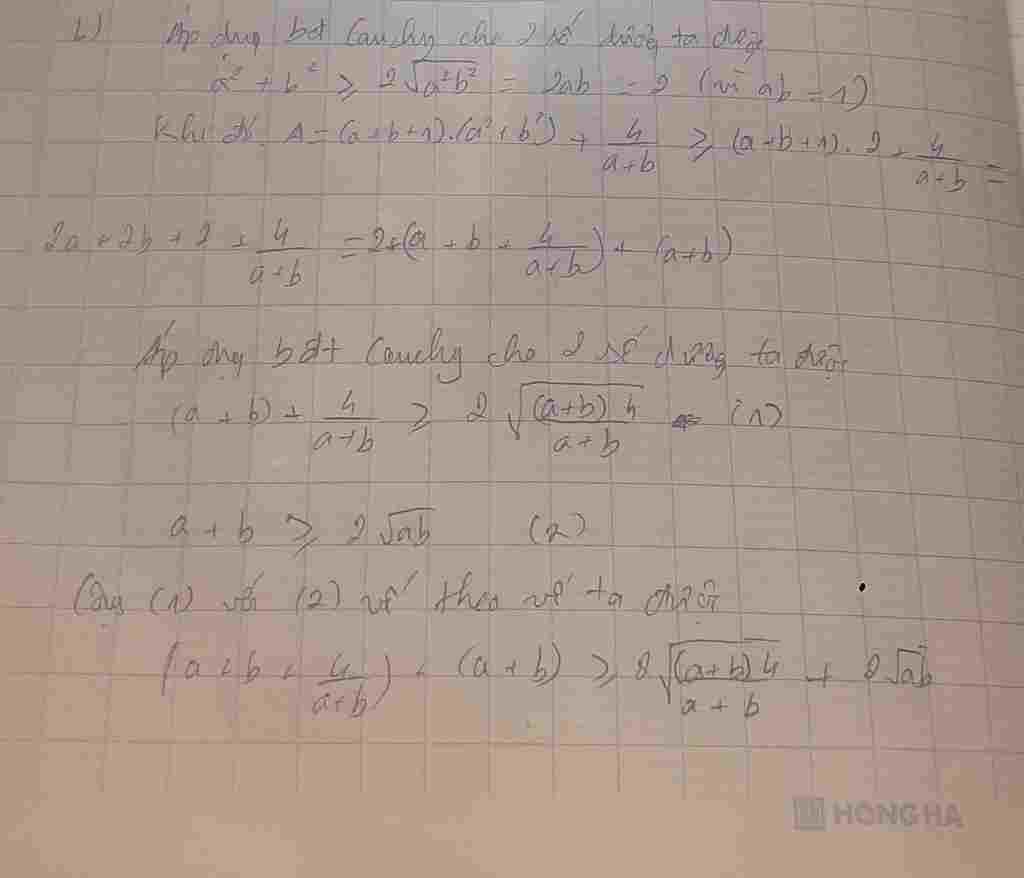 b) Áp dụng bđt Cauchy cho 2 số dương ta được
a² + b² ≥ 2√(a²b²) = 2ab = 2 (vì ab = 1)
Khi đó A = (a+b+1).(a²+b²) + 4/(a+b) ≥ (a+b+1).2 + 4/(a+b) =
2a + 2b + 2 + 4/(a+b) = 2+(a + b + 4/(a+b)) + (a+b)
Áp dụng bđt Cauchy cho 2 số dương ta được
(a + b) + 4/(a+b) ≥ 2√((a+b)4/(a+b)) (1)
a + b ≥ 2√ab (2)
Cộng (1) với (2) vế theo vế ta được
(a + b + 4/(a+b)) + (a + b) ≥ 2√((a+b)4/(a+b)) + 2√ab
HONG HA